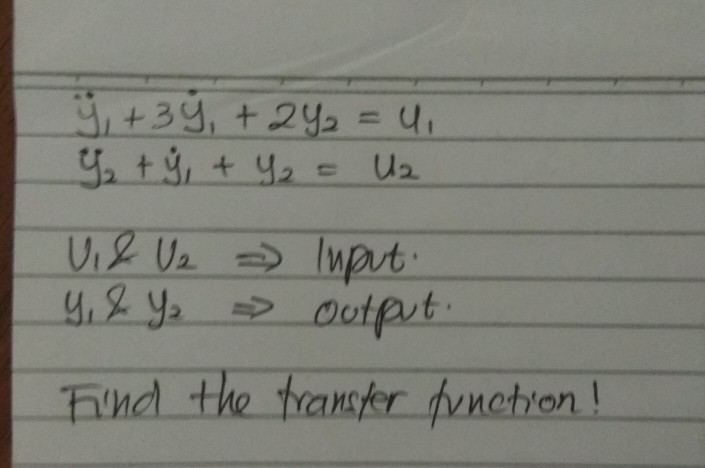 ÿ₁ + 3ẏ₁ + 2y₂ = u₁
ÿ₂ + ẏ₁ + y₂ = u₂
U₁ & U₂ ⇒ Input.
y₁ & y₂ ⇒ output.
Find the transfer function!